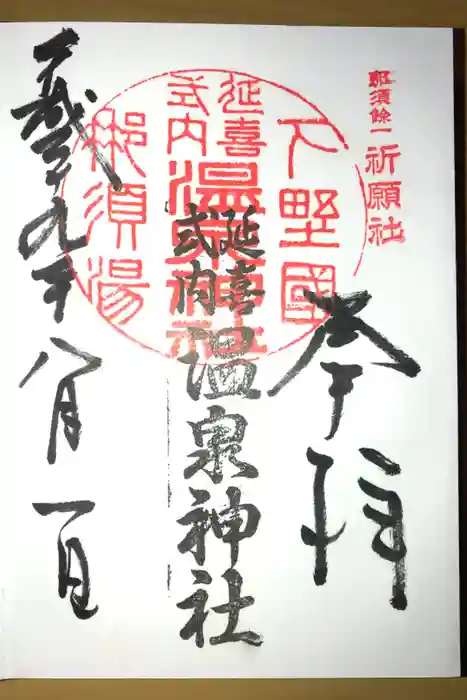 那須餘一 祈願社
奉拝
下野國
延喜
式内
温泉神社
那須湯
延喜
式内
温泉神社
九年八月一日